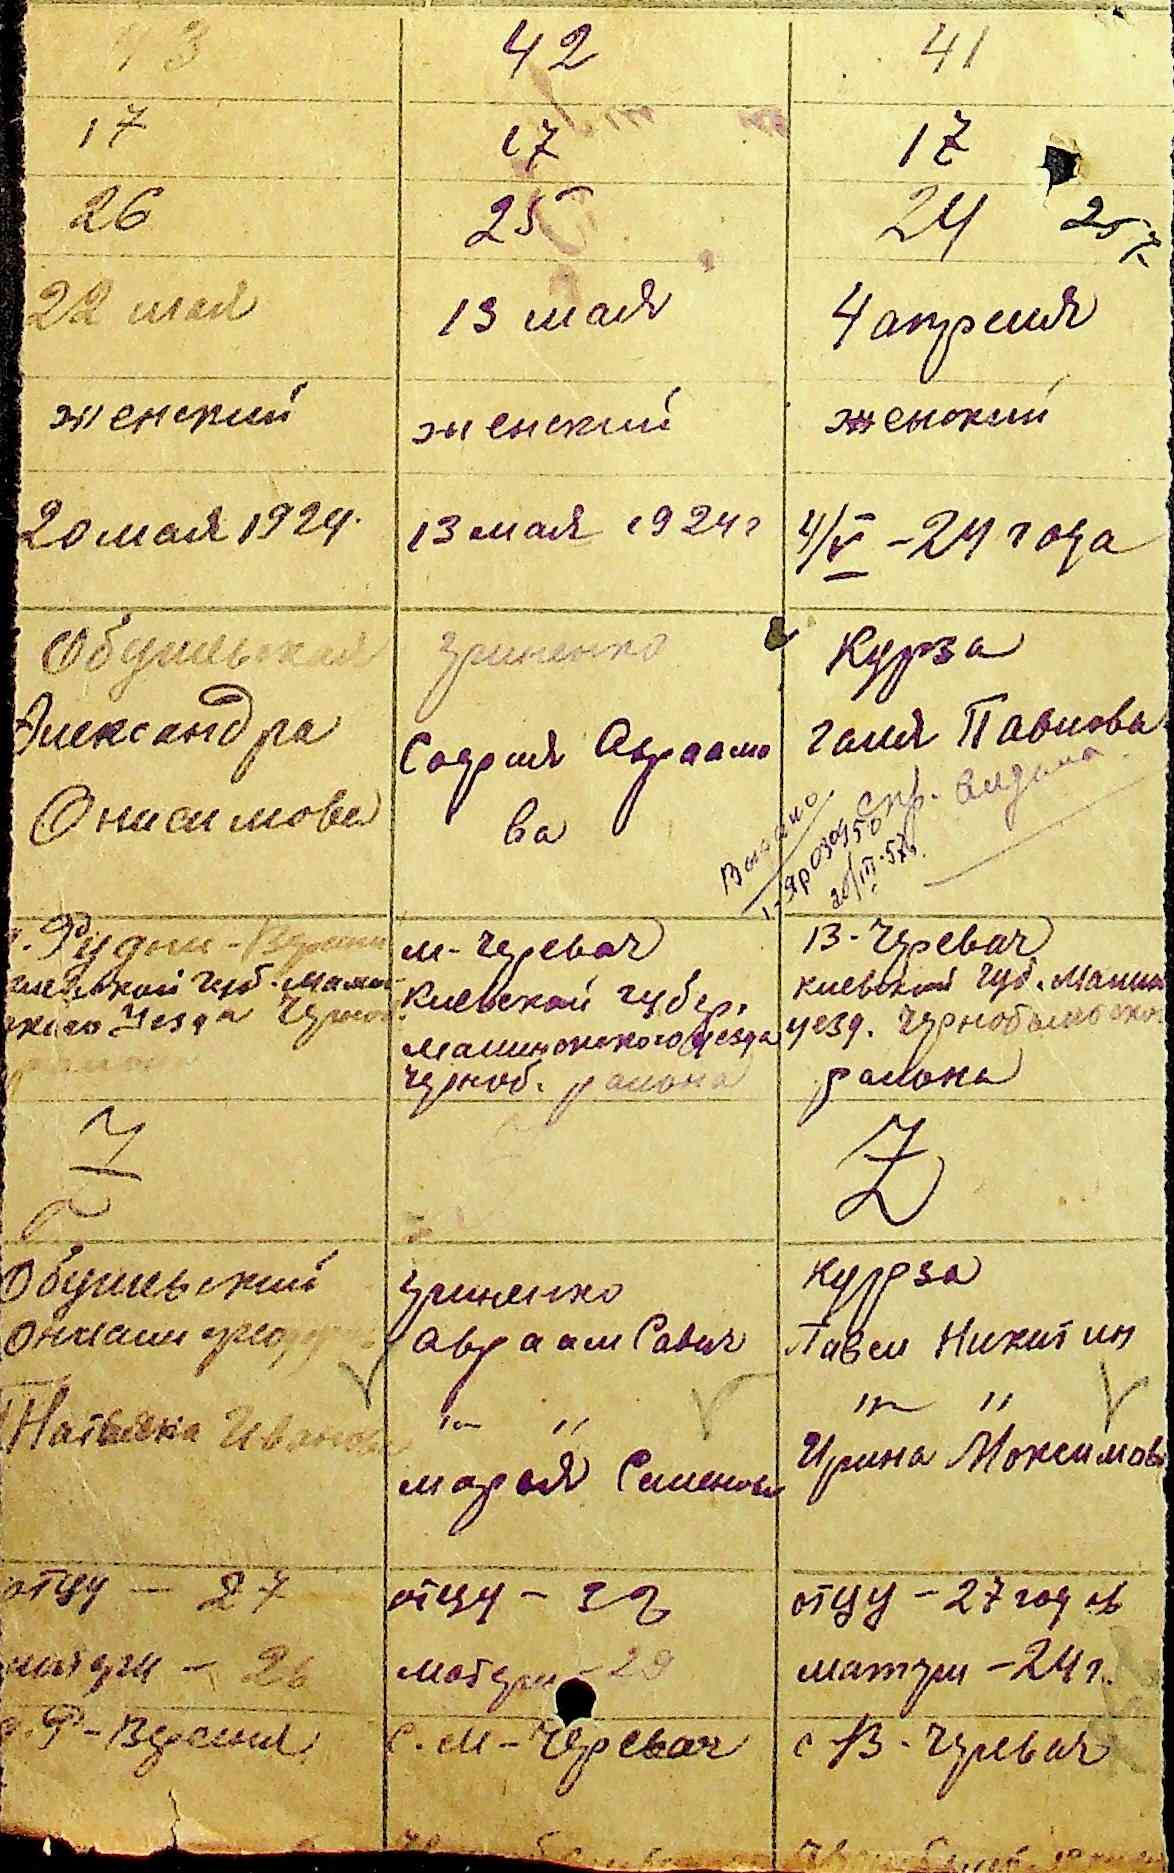 43
17
26
22 мая
женский
20 мая 1924.
Обушельская
Александра
Онисимова
Рудни-
губ.
уезда
7
Обушевский
Натвяна Иванова
отцу — 27
матери - 26
Р-Вересня
42
17
25
13 мая
женский
13 мая 1924 г
Гриненко
София Авраамо
ва
м-Черевач
Киевской губер.
Малинского уезда
Черноб. района
Гриненко
Авраам Савич
"-  "
Марья Семенова
отцу -
матери - 29
с. М-Черевач
41
17
24 25
4 апреля
женский
4/V -24 года
Курза
Галя Павлова
Выдано спр.
20/III-57г.
В-Черевач
Киевской губ. Малин
уезд. Чернобыльского
района
Z
Курза
Павел Никитин
"-  "
Ирина Максимова
отцу - 27 годов
матери - 24 г.
с В. Черевач